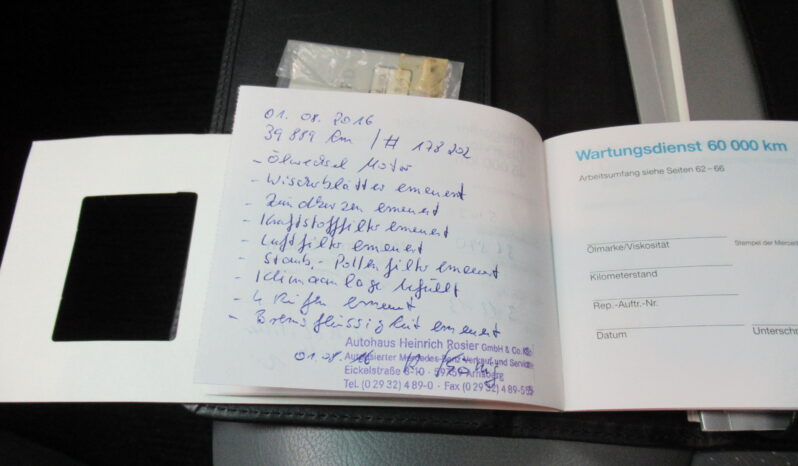 01. 08. 2016
39 889 km / # 178202
- Ölwechsel Motor
- Wischerblätter erneuert
- Zündkerzen erneuert
- Kraftstofffilter erneuert
- Luftfilter erneuert
- Staub.- Pollenfilter erneuert
- Klimaanlage befüllt
- 4 Reifen erneuert
- Bremsflüssigkeit erneuert
Autohaus Heinrich Rosier GmbH & Co. KG
01.08.16
Autorisierter Mercedes-Benz Verkauf und Service
Eickelstraße 8-10 · 59759 Arnsberg
Tel. (0 29 32) 4 89-0 · Fax (0 29 32) 4 89-55
Wartungsdienst 60 000 km
Arbeitsumfang siehe Seiten 62–66
Ölmarke/Viskosität
Stempel der Merced
Kilometerstand
Rep.-Auftr.-Nr.
Datum
Unterschri